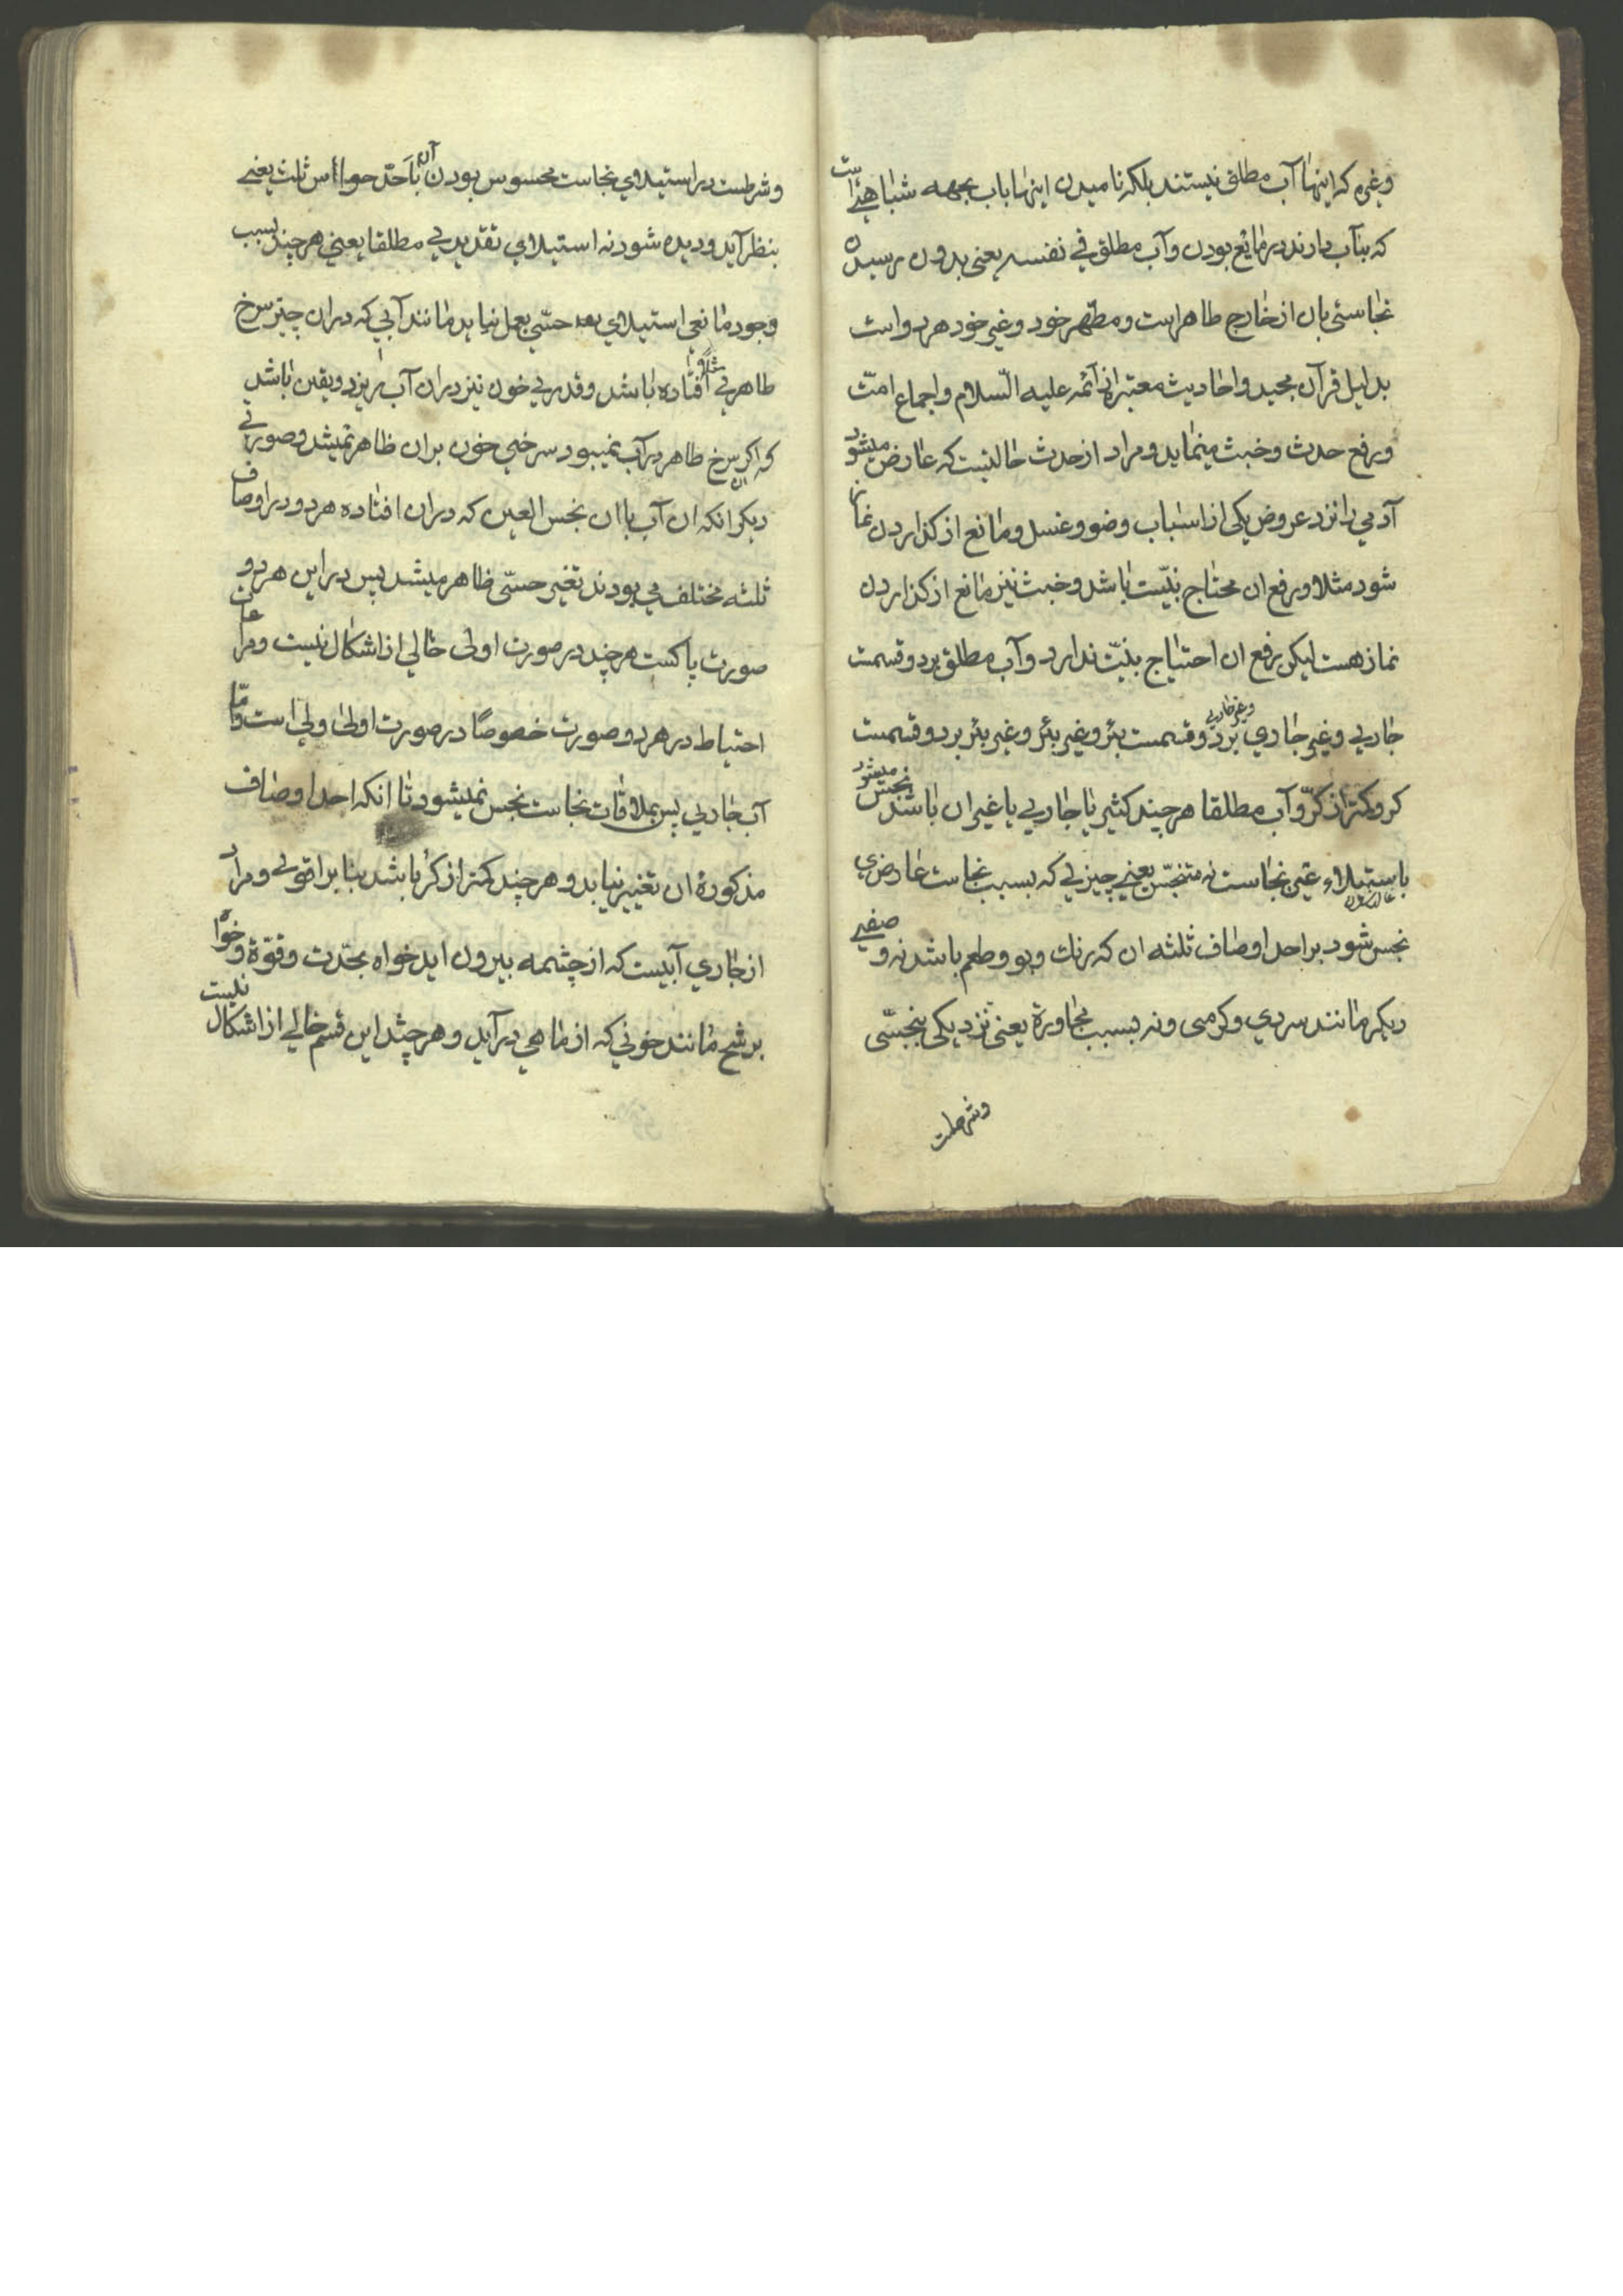 وغیره که اینها آب مطلق نیستند بلکه نامیدن اینها باب بجهه شباهتیست
که بآب دارند در مایع بودن وآب مطلق فی نفسه یعنی بدون رسیدن
نجاستی بان از خارج طاهر است ومطهر خود وغیر خود هر دو است
بدلیل قرآن مجید واحادیث معتبره از ائمه علیه السّلام واجماع امّت
ورفع حدث وخبث مینماید ومراد از حدث حالتیست که عارض میشود
آدمی را نزد عروض یکی از اسباب وضو وغسل ومانع از گذاردن نماز
شود مثلا ورفع ان محتاج بنیّت باشد وخبث نیز مانع از گذاردن
نماز هست لیکن رفع ان احتیاج بنیّت ندارد وآب مطلق بر دو قسمت
جاری وغیر جاری وغیر جاری بر دو قسمست بئر وغیر بئر وغیر بئر بر دو قسمت
کر وکمتر از کرّ وآب مطلقا هر چند کثیر یا جاری یا غیر ان باشد نجس میشود
باستیلاء عین نجاست نه متنجّس یعنی چیزی که بسبب نجاست عارضی
نجس شود بر احد اوصاف ثلثه ان که رنك وبو وطعم باشد نه وصفی
دیگر مانند سردی وگرمی ونه بسبب مجاورة یعنی نزدیکی بنجسّی
وشرطست
وشرطست در استیلای نجاست محسوس بودن آن باحدّ حواس ثلث یعنی
بنظر آید ودیده شود نه استیلای تقدیری مطلقا یعنی هر چند بسبب
وجود مانعی استیلای حسّی بعمل نیاید مانند آبی که دران چیز سرخ
طاهری مثلا افتاده باشد وقدری خون نیز دران آب بریزد ویقین باشد
که اگر ان سرخ طاهر در آب نمیبود سرخی خون بران ظاهر نمیشد وصورتی
دیگر انکه ان آب باان نجس العین که دران افتاده هر دو در اوصاف
ثلثه مختلف می بودند تغیر حسّی ظاهر میشد پس در این هر دو
صورت پاکست هر چند در صورت اولی خالی از اشکال نیست ومراعات
احتیاط در هر دو صورت خصوصًا در صورت اولی اولی است وامّا
آب جاری پس بملاقات نجاست نجس نمیشود تا انکه احد اوصاف
مذکورۀ ان تغییر نیابد وهر چند کمتر از کر باشد بنابر اقوی ومراد
از جاری آبیست که از چشمه بیرون اید خواه بحدّت وقوّة وخواه
برشح مانند خونی که از ماهی در آید وهر چند این قسم خالی از اشکال نیست